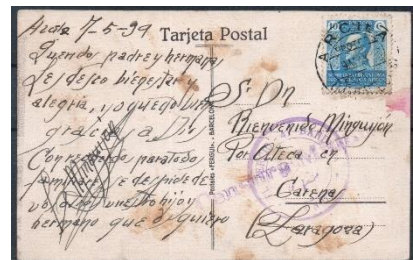 Arcila 7-5-39
Tarjeta Postal
Querido padre y hermano
Les deseo bienestar y
alegria, yo quedo bien
gracias a Dios
Con recuerdo para toda
familia se despide de
vosotros vuestro hijo y
hermano que os quiere
Sr Dn
Bienvenido Minguijón
Por Ateca en
Carenas
(Zaragoza)
ARCILA
BARCELONA